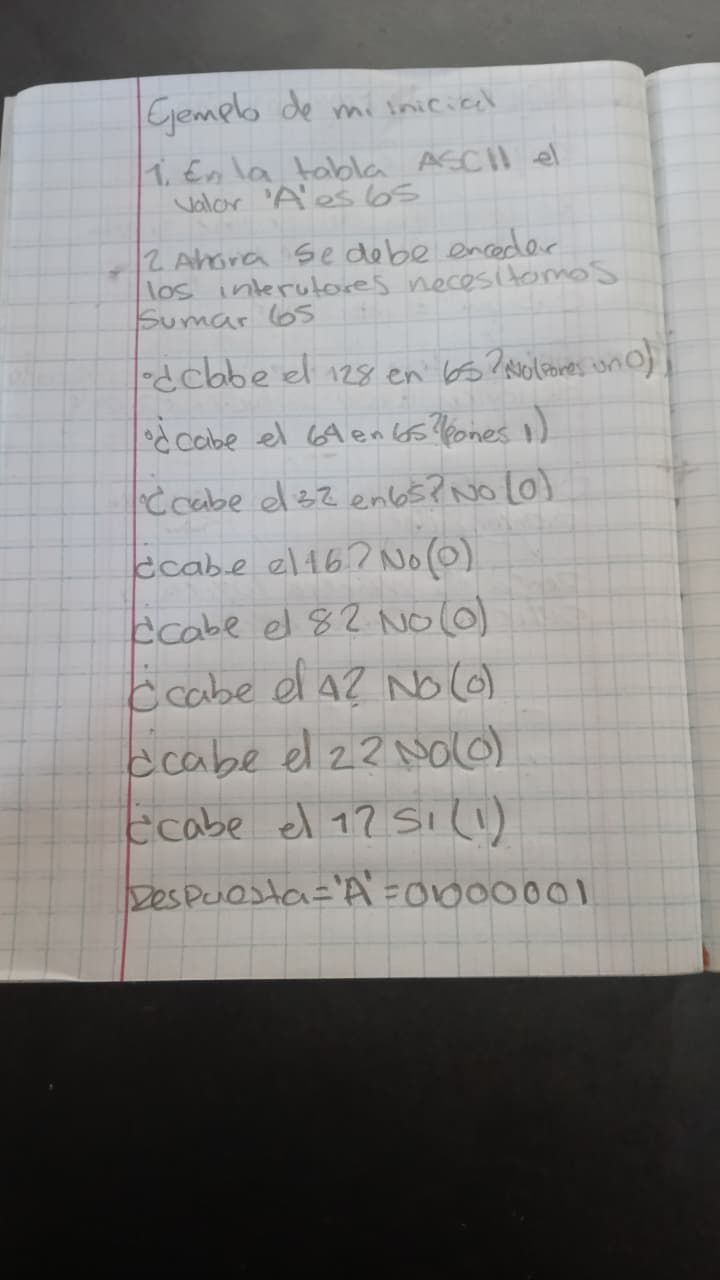 Ejemplo de mi inicial
1. En la tabla ASCII el
valor 'A' es 65
2 Ahora se debe enceder
los interutores necesitamos
Sumar 65
¿Cabe el 128 en 65? No (pones un 0)
¿cabe el 64 en 65? (pones 1)
¿cabe el 32 en 65? No (0)
¿cabe el 16? No (0)
¿cabe el 8? No (0)
¿cabe el 4? No (0)
¿cabe el 2? No (0)
¿cabe el 1? Si (1)
Respuesta = 'A' = 01000001